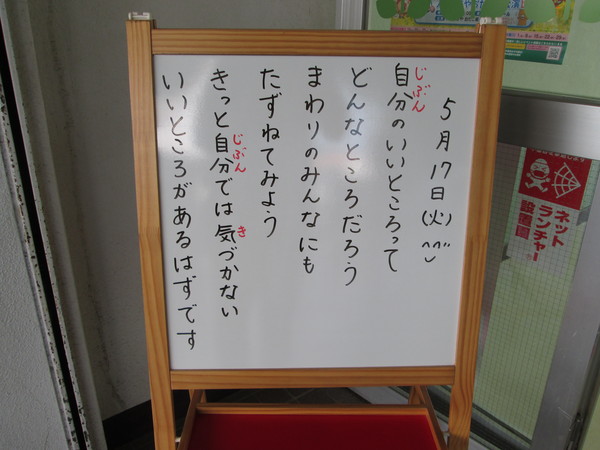 5月17日(火)
自分のいいところって
じぶん
どんなところだろう
まわりのみんなにも
たずねてみよう
きっと自分では気づかない
じぶん
き
いいところがあるはずです
ネット
ランチャー
設置園